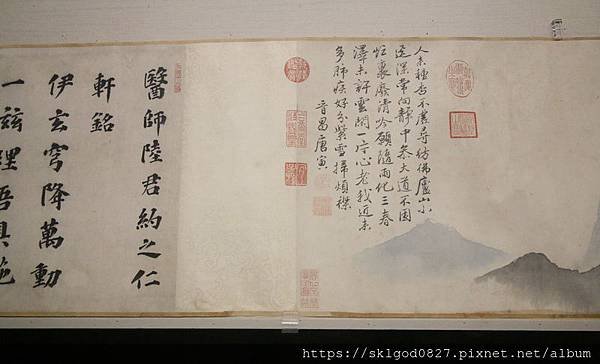 人來種杏不虛尋彷彿廬山小
逕深常向靜中參大道不因
忙裏廢清吟願隨雨化三春
澤未許雲閒一片心老我近來
多肺疾好分紫雪掃煩襟
晉昌唐寅
醫師陸君約之仁
軒銘
伊玄穹降萬動
一茲理吾
https://sklgod0827.pixnet.net/album